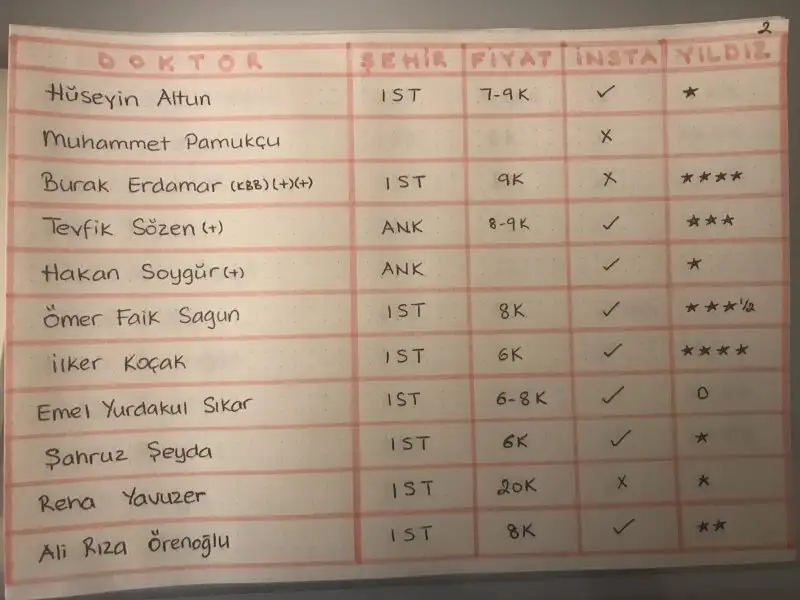 2
DOKTOR ŞEHİR FİYAT İNSTA YILDIZ
Hüseyin Altun IST 7-9K ✓ ★
Muhammet Pamukçu x
Burak Erdamar (KBB)(+)(+) IST 9K x ★★★★
Tevfik Sözen (+) ANK 8-9K ✓ ★★★
Hakan Soygür (+) ANK ✓ ★
Ömer Faik Sagun IST 8K ✓ ★★★½
ilker Koçak IST 6K ✓ ★★★★
Emel Yurdakul Sıkar IST 6-8K ✓ 0
Şahruz Şeyda IST 6K ✓ ★
Reha Yavuzer IST 20K x ★
Ali Rıza Örenoğlu IST 8K ✓ ★★